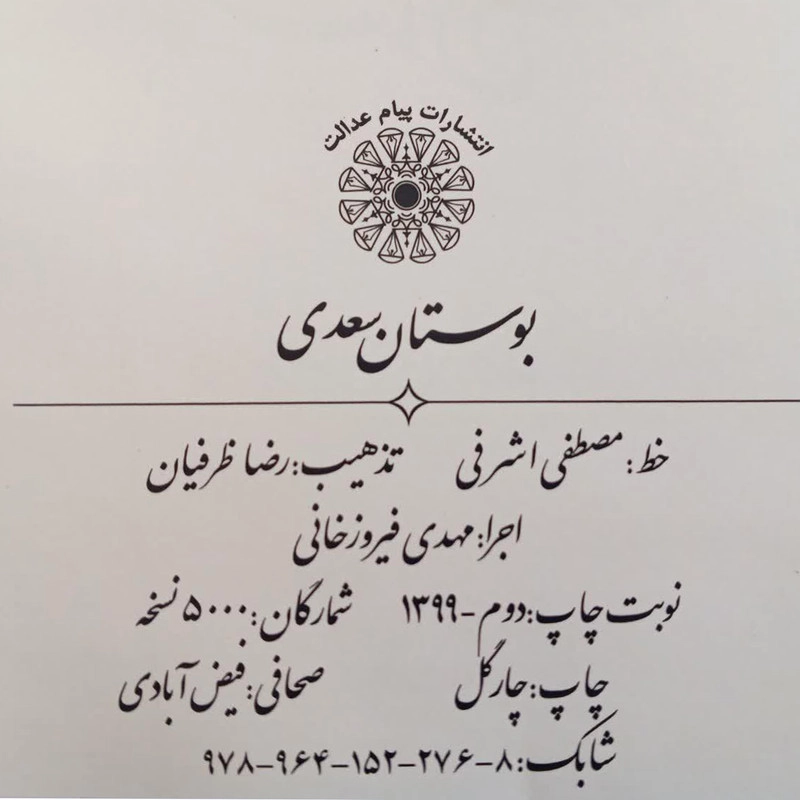 انتشارات پیام عدالت
بوستان سعدی
خط: مصطفی اشرفی تذهیب: رضا ظرفیان
اجرا: مهدی فیروزخانی
نوبت چاپ: دوم - ۱۳۹۹ شمارگان: ۵۰۰۰ نسخه
چاپ: چارگل صحافی: فیض آبادی
شابک: ۸-۲۷۶-۱۵۲-۹۶۴-۹۷۸